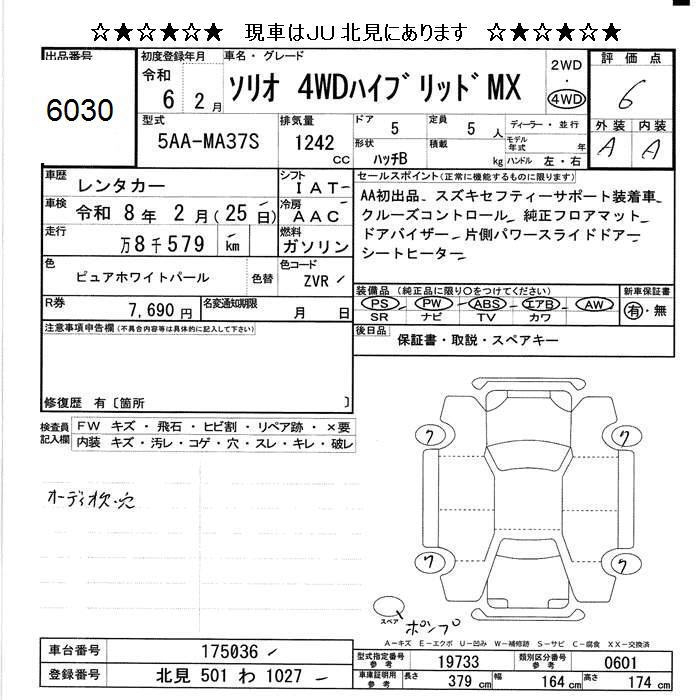 ☆★☆★☆★ 現車はJU北見にあります ☆★☆★☆★
出品番号
6030
初度登録年月
令和 6 2月
車名・グレード
ソリオ 4WDハイブリッドMX
2WD
・
4WD
評価点
6
型式
5AA-MA37S
排気量
1242 CC
ドア 5
定員 5 人
形状 ハッチB
積載 kg
ディーラー・並行
モデル年式 年
ハンドル 左・右
外装 内装
A A
車歴 レンタカー
シフト IAT
車検 令和 8年 2月(25日)
冷房 AAC
走行 万8千579 km
燃料 ガソリン
色 ピュアホワイトパール 色替
色コード ZVR
R券 7,690円
名変通知期限 月 日
セールスポイント(正常に機能するものに限ります)
AA初出品 スズキセフティーサポート装着車
クルーズコントロール 純正フロアマット
ドアバイザー 片側パワースライドドアー
シートヒーター
装備品(純正品に限り〇をつけてください)
PS PW ABS エアB AW
SR ナビ TV カワ
新車保証書
有・無
後日品 保証書・取説・スペアキー
注意事項申告欄(不具合内容等は具体的に記入して下さい)
修復歴 有〔箇所 〕
検査員記入欄
FW キズ・飛石・ヒビ割・リペア跡・×要
内装 キズ・汚レ・コゲ・穴・スレ・キレ・破レ
オーディオ欠・穴
ワ ワ
ワ ワ
スペア
ポンプ
A-キズ E-エクボ U-凹み W-補修跡 S-サビ C-腐食 XX-交換済
車台番号 175036
登録番号 北見 501 わ 1027
型式指定番号参考 19733
類別区分番号参考 0601
車庫証明用参考 長さ 379 cm 幅 164 cm 高さ 174 cm